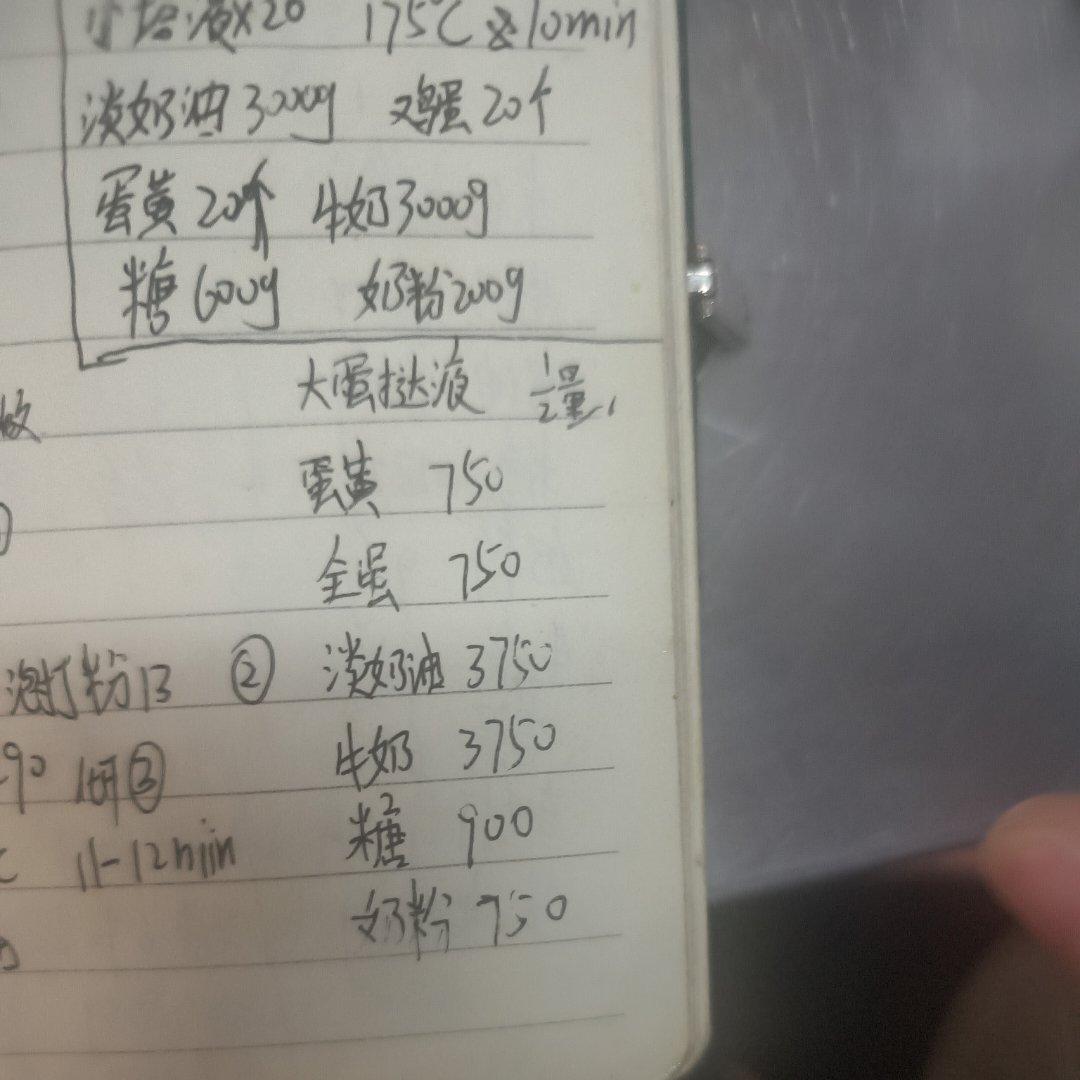 小塔液×20 175℃ 10min
淡奶油3000g 鸡蛋20个
蛋黄20个 牛奶3000g
糖600g 奶粉200g
大蛋挞液 1/2量
蛋黄 750
全蛋 750
泡打粉13 ② 淡奶油 3750
90 ③ 牛奶 3750
11-12min 糖 900
奶粉 750